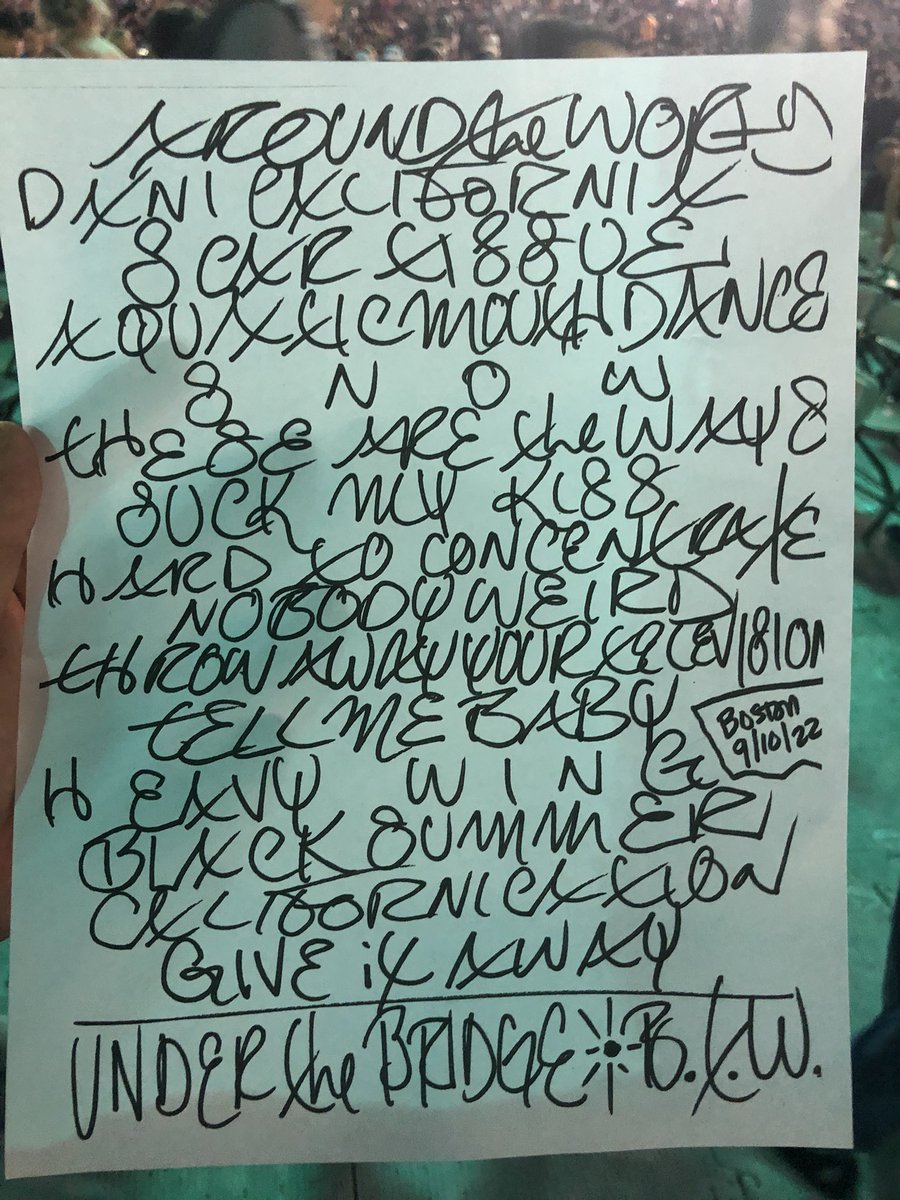 AROUND the WORLD
DANI CALIFORNIA
SCAR TISSUE
AQUATIC MOUTH DANCE
SNOW
tHESE ARE the WAYS
SUCK MY KISS
HARD TO CONCENTRATE
NOBODY WEIRD
tHROW AWAY YOUR TELEVISION
tELL ME BABY
Boston
9/10/22
HEAVY WING
BLACK SUMMER
CALIFORNICATION
GIVE iT AWAY
UNDER the BRIDGE B.T.W.